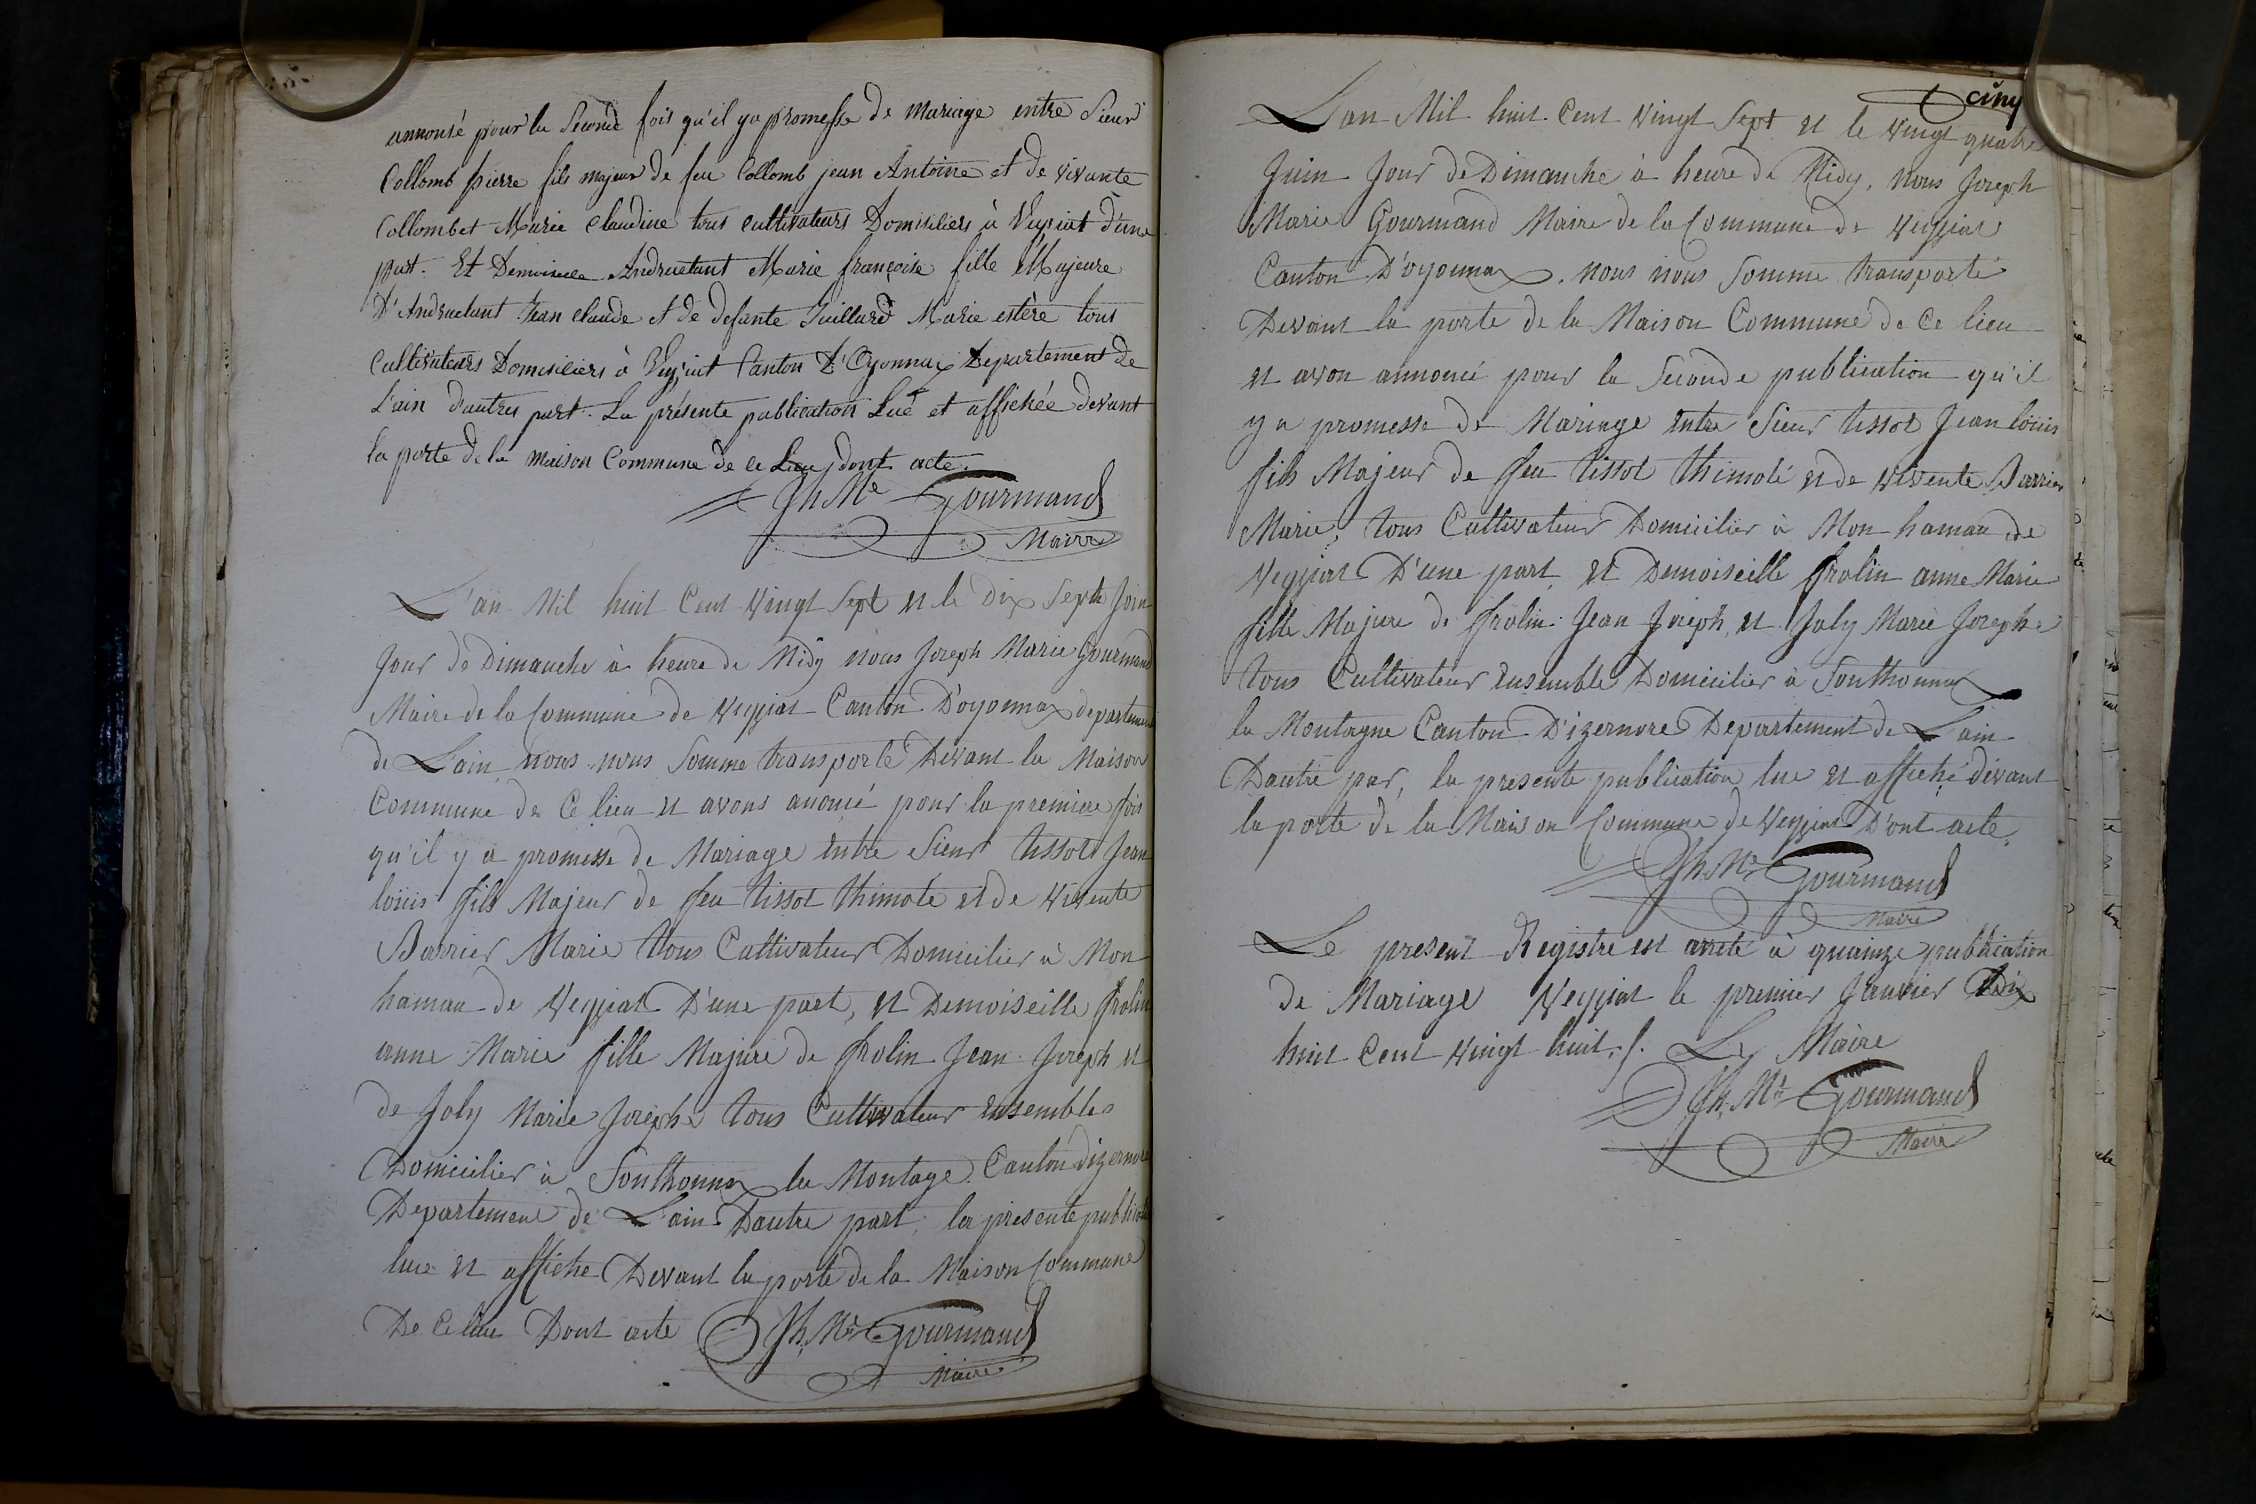 annonsé pour la Seconde fois qu'il ya promesse de mariage entre Sieur
Collomb pierre fils majeur de feu Collomb jean Antoine et de vivante
Collombet Marie claudine tous cultivateurs Domisiliers à Veyziat d'une
part. Et Demoiselle Andruetant Marie françoise fille Majeure
D'Andruetant Jean claude et de defante Juillard Marie estère tous
Cultivateurs Domisiliers à Veyziat Canton D'Oyonnax Departement de
L'ain d'autres part. La présente publication Lué et affichée devant
la porte de la maison Commune de ce Lieu dont acte.
Jh Me Gourmand
Maire
L'an Mil huit Cent Vingt Sept et le Dix Septe Join
Jour de Dimanche à heure de Midy nous Joseph Marie Gourmand
Maire de la Commune de Veyziat Canton D'oyonnax departement
de Lain nous nous Somme transporté Devant la Maison
Commune de Ce lieu et avons anoncé pour la premiere fois
qu'il y a promesse de Mariage Entre Sieur tissot Jean
louis fils Majeur de feu tissot thimoté et de Vivente
Barrier Marie tous Cultivateur Domicilier à Mon
hamau de Veyziat D'une part, et Demoiseille frolin
anne Marie fille Majure de frolin Jean Joseph et
de Joly Marie Josephe tous Cultivateur Ensembles
Domicilier à Sonthonnax la Montage Canton dizernore
Departement de Lain Dautre part, la presente publication
lue et affiche Devant la porte de la Maison Commune
De Ce lieu Dont acte Jh Me Gourmand
Maire
cinq
Lan Mil huit Cent Vingt Sept et le Vingt quatre
Juin Jour de Dimanche à heure de Midy, nous Joseph
Marie Gourmand Maire de la Commune de Veyziat
Canton D'oyonnax. nous nous Somme transporté
Devant la porte de la Maison Commune de Ce lieu
et avon annoncé pour la Seconde publication qu'il
y a promesse de Mariage Entre Sieur tissot Jean louis
fils Majeur de feu tissot thimoté et de Vivente Barrier
Marie, tous Cultivateur Domicilier à Mon hamau de
Veyziat D'une part, et Demoiseille frolin anne Marie
fille Majure de frolin Jean Joseph, et Joly Marie Josephe
tous Cultivateur Ensemble Domicilier à Sonthonnax
la Montagne Canton D'izernore Departement de Lain
Dautre par, la presente publication lue et affiché dèvant
la porte de la Maison Commune de Veyziat D'ont acte.
Jh Me Gourmand
Maire
Le present Registre est arreté à quainze publication
de Mariage Veyziat le premier Janvier Dix
huit Cent Vingt huit. Le Maire
Jh Me Gourmand
Maire